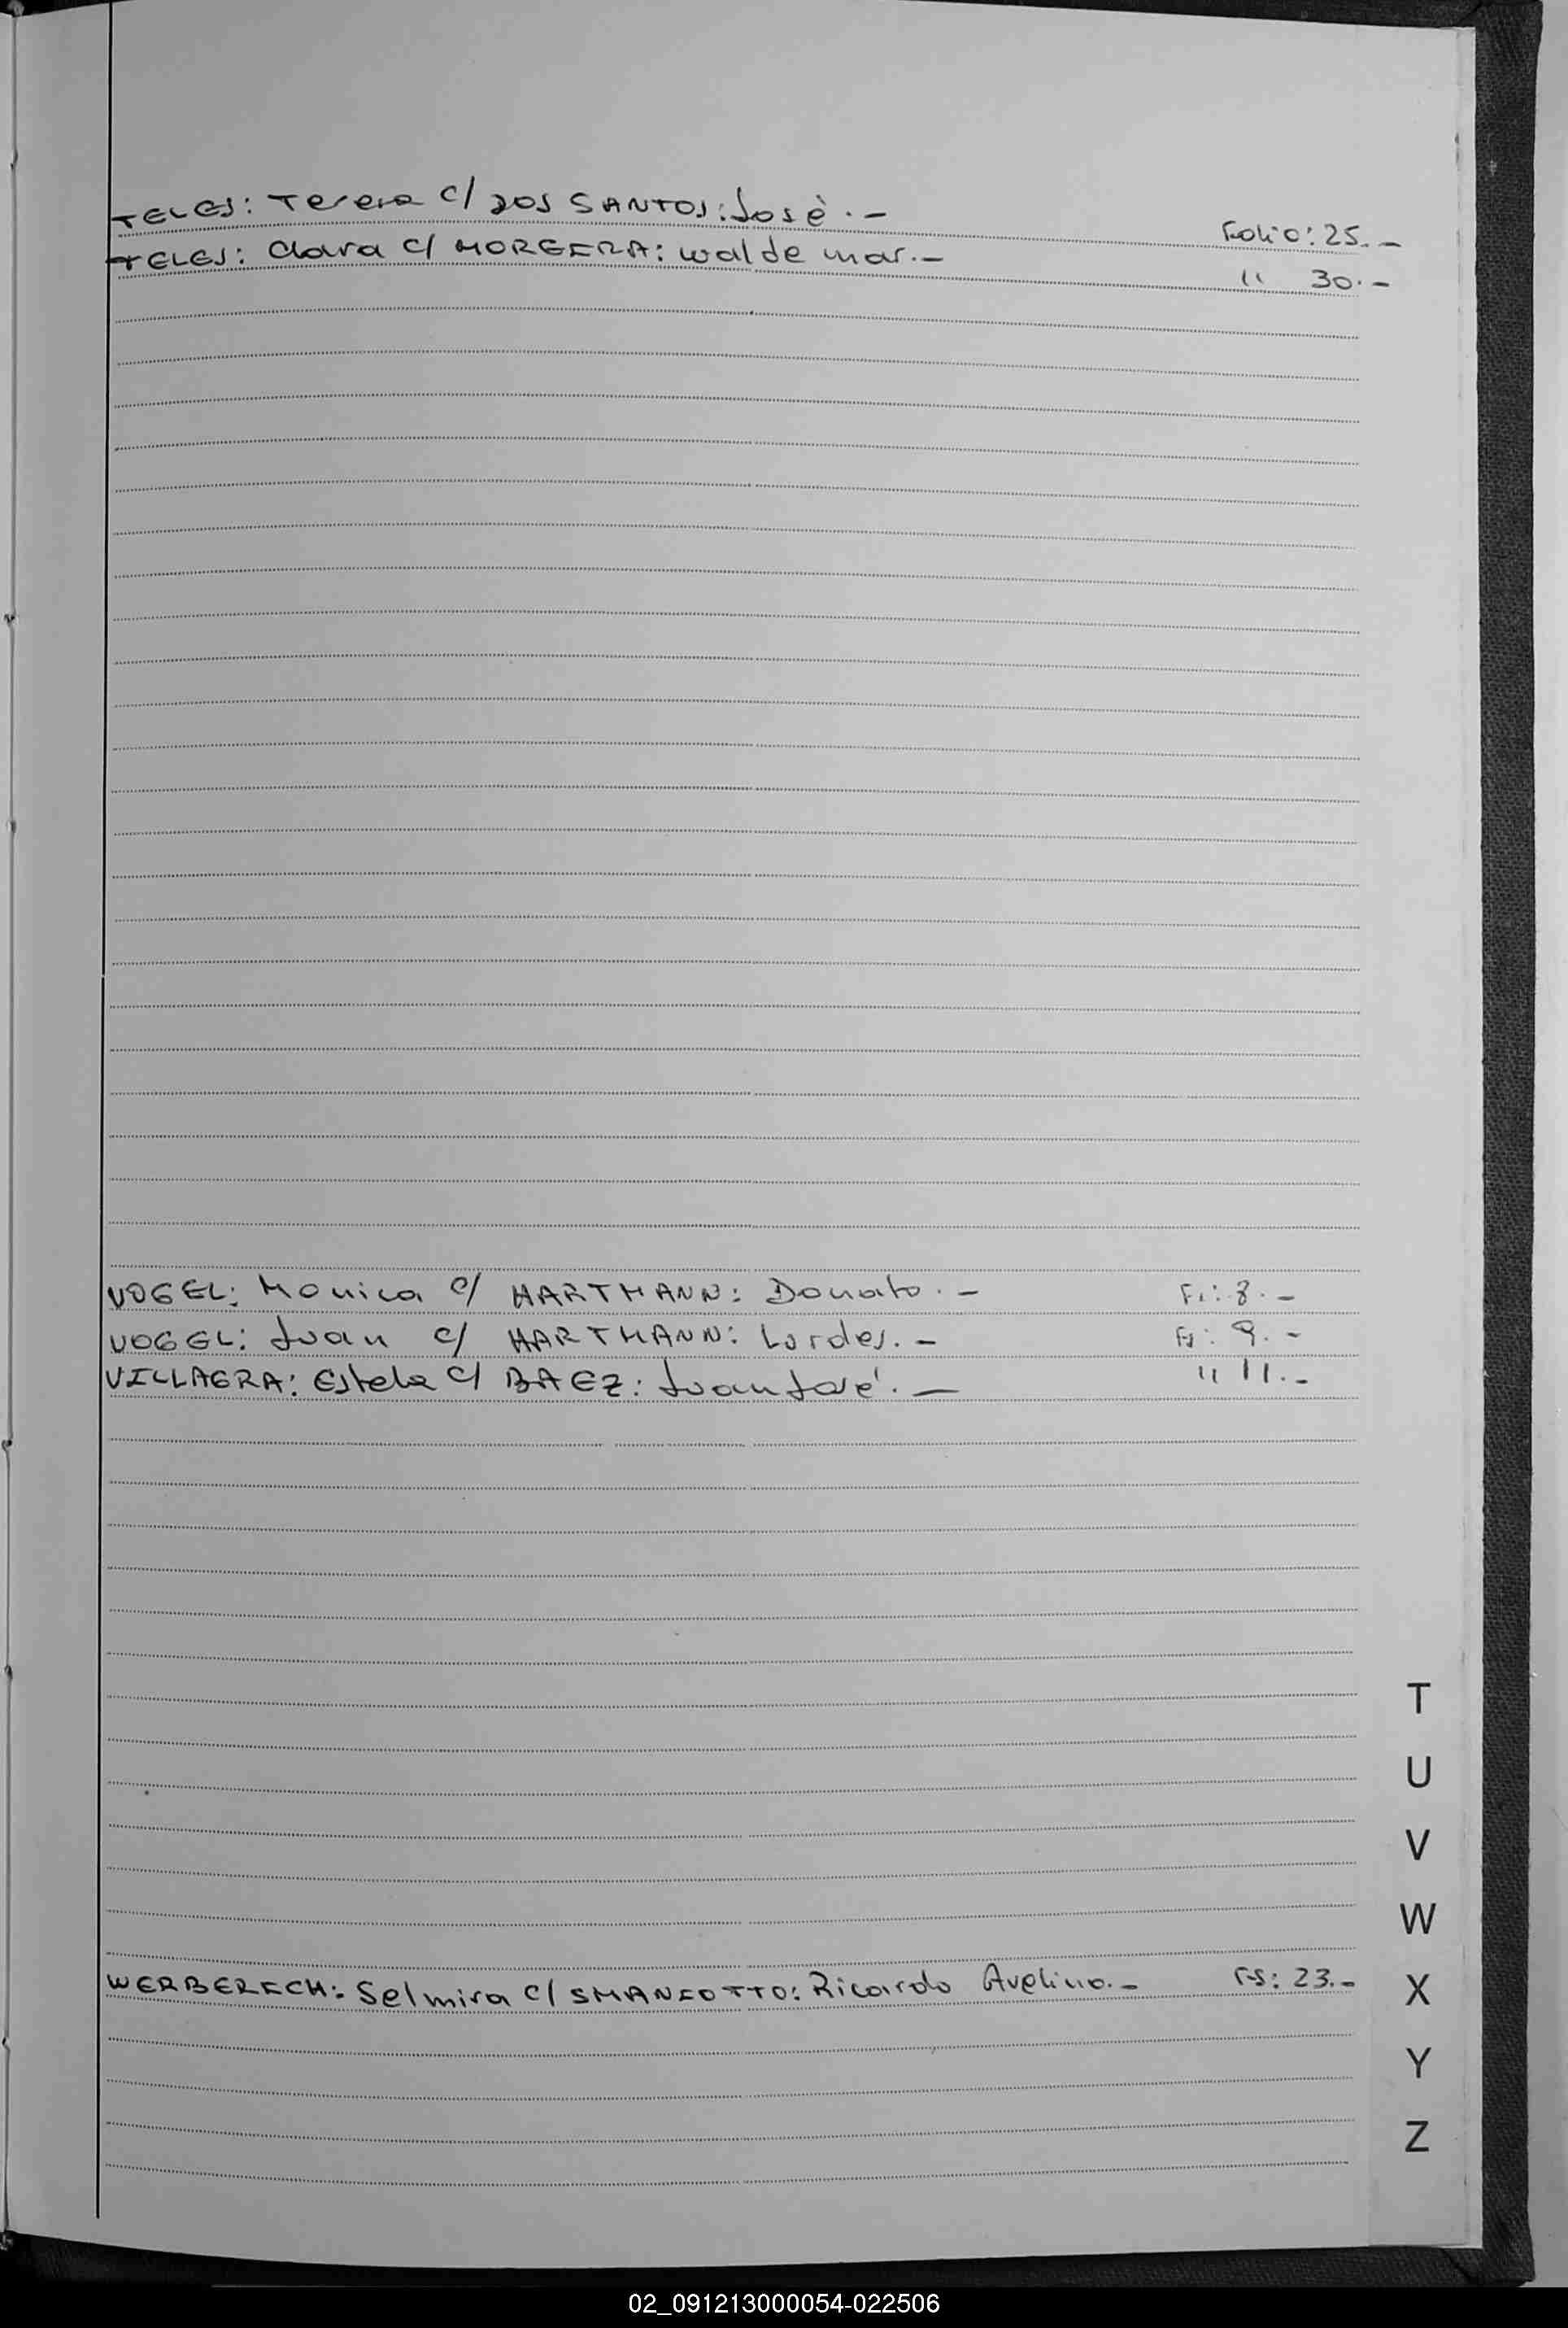 TELES: Teresa c/ DOS SANTOS: Josè.- Folio: 25.-
TELES: Clara c/ MORGERA: walde mar.- " 30.-
VOGEL: Monica c/ HARTMANN: Donato.- Fj: 8.-
VOGEL: Juan c/ HARTMANN: Lurdes.- Fj: 9.-
VILLAGRA: Estela c/ BAEZ: Juan José.- " 11.-
WERBERICH: Selmira c/ SMANIOTTO: Ricardo Avelino.- FS: 23.-
T
U
V
W
X
Y
Z
02_091213000054-022506